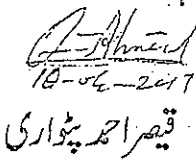 18-04-2017
قیصر احمد پٹواری